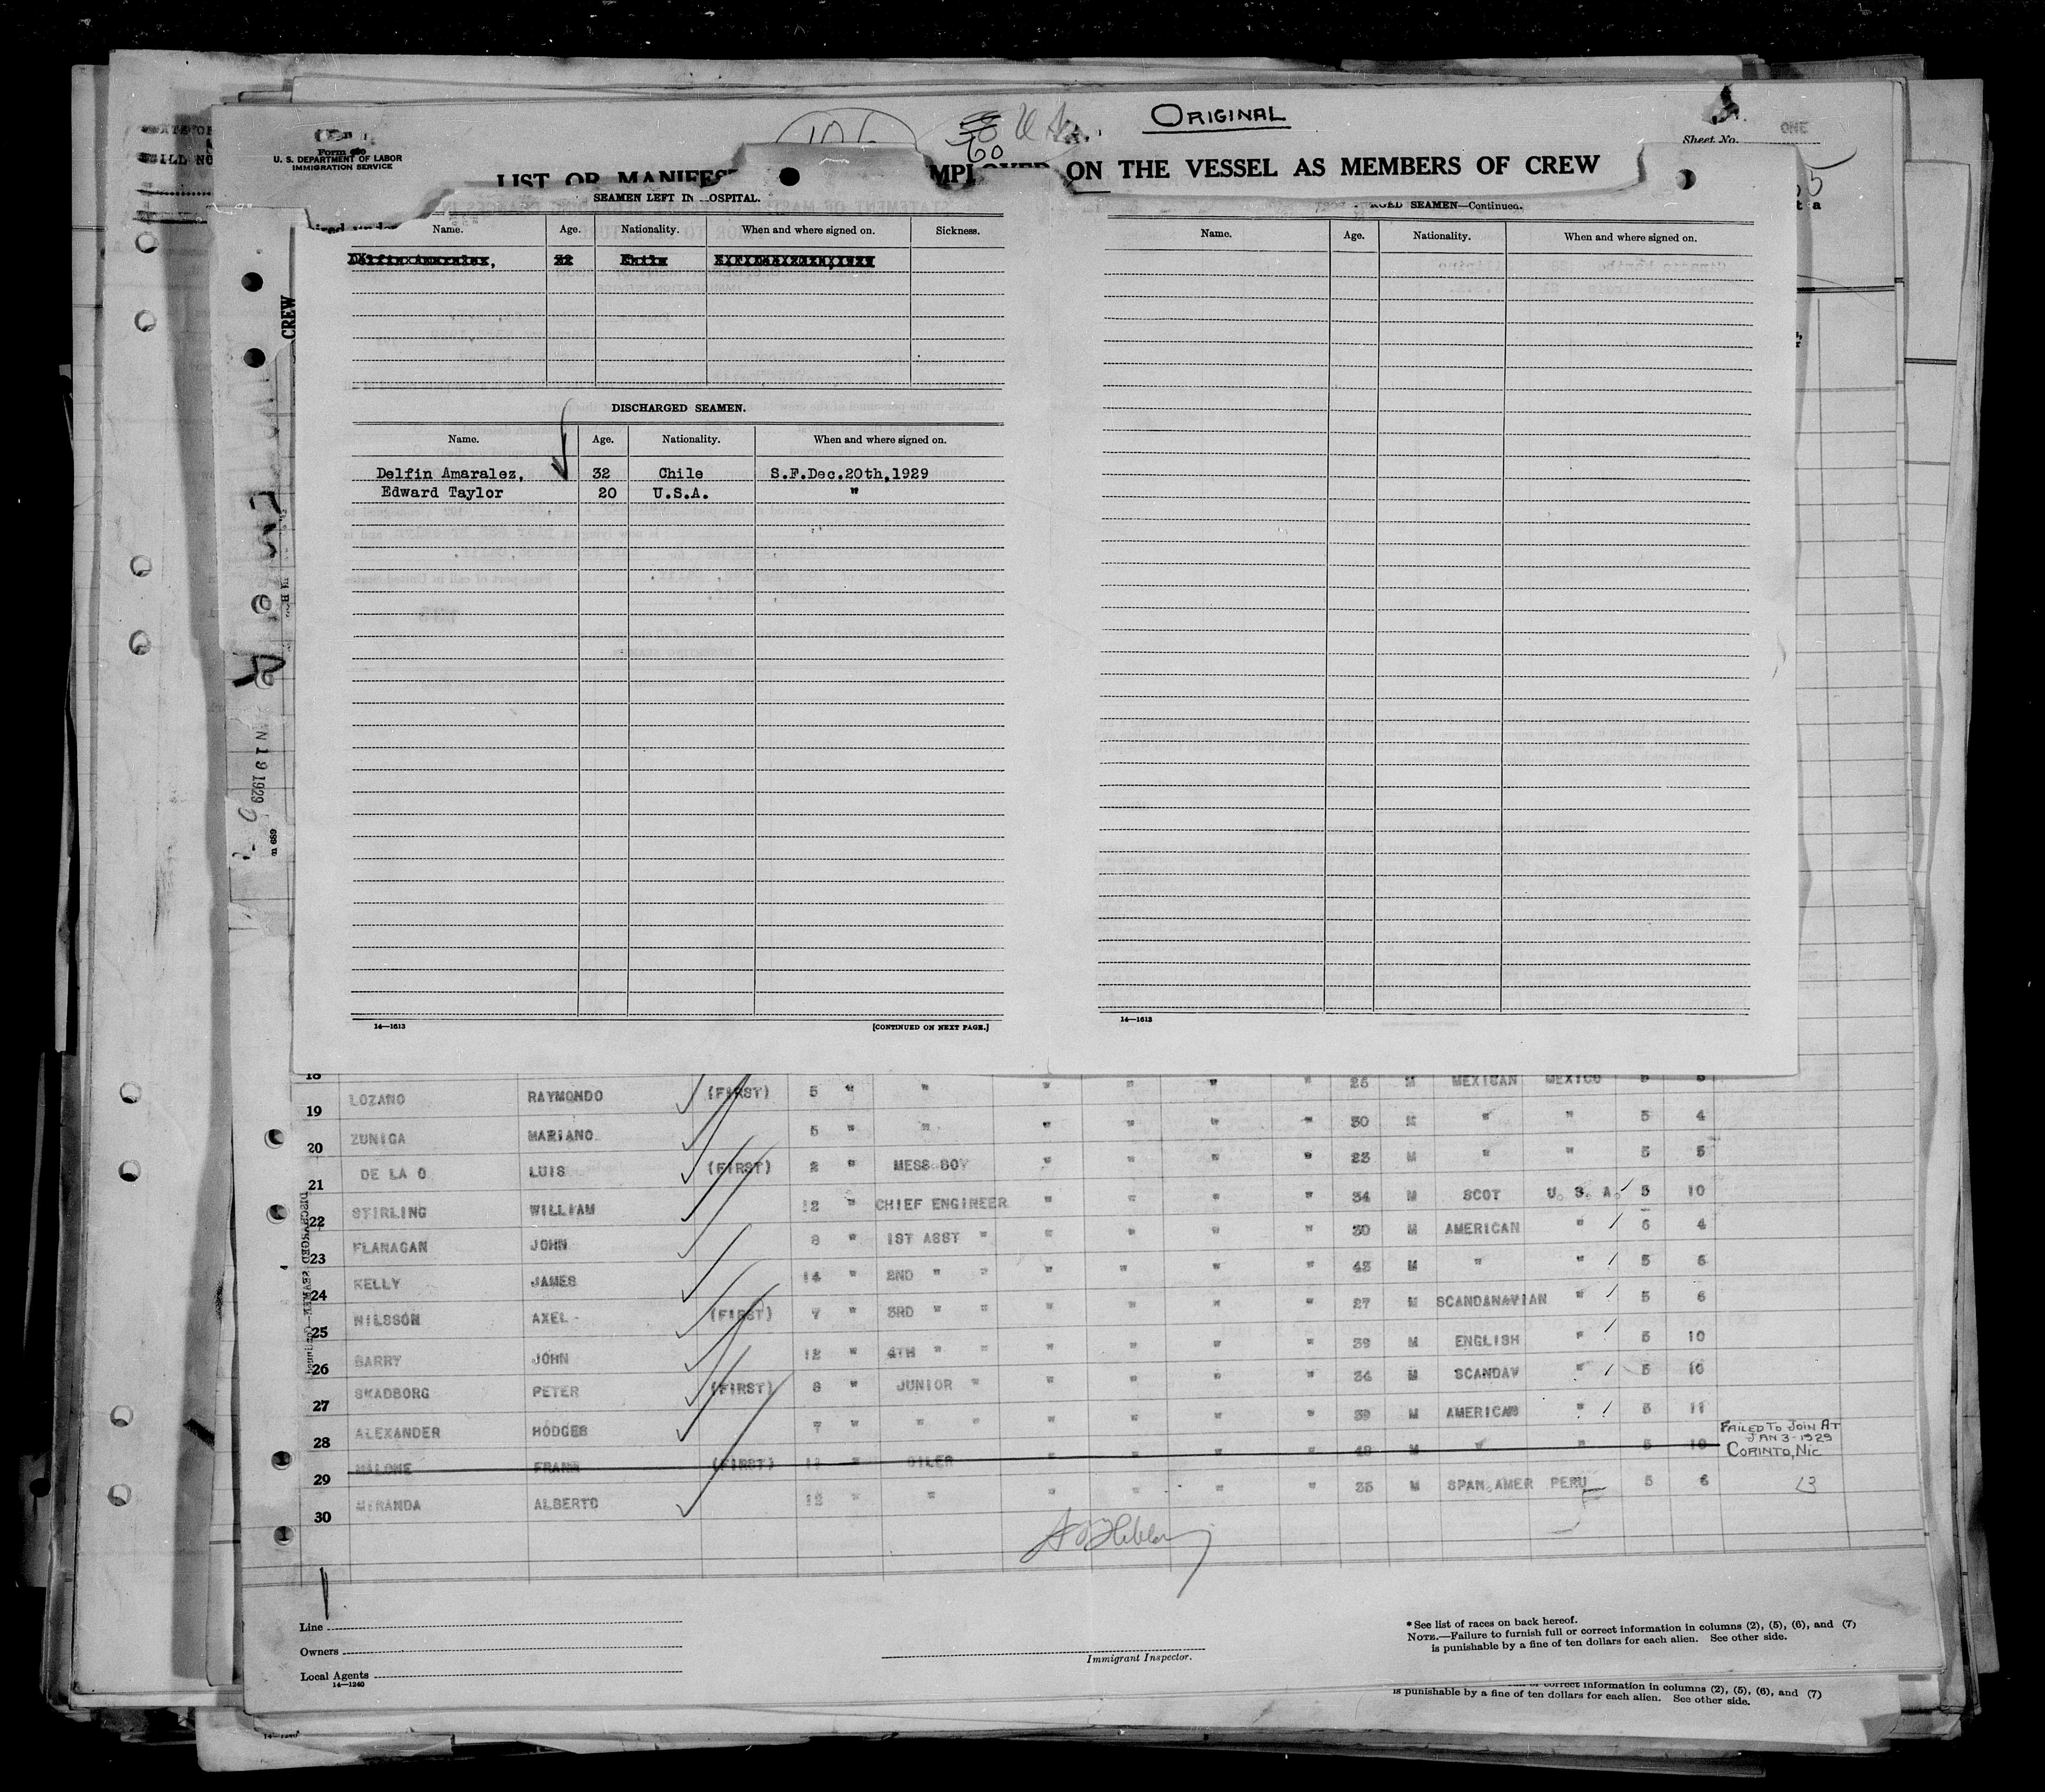 ORIGINAL
Sheet No. ONE
60
U. S. DEPARTMENT OF LABOR
IMMIGRATION SERVICE
LIST OR MANIFEST
ON THE VESSEL AS MEMBERS OF CREW
SEAMEN LEFT IN OSPITAL.
Name. Age. Nationality. When and where signed on. Sickness.
DISCHARGED SEAMEN.
Name. Age. Nationality. When and where signed on.
Delfin Amaralez, 32 Chile S.F.Dec.20th,1929
Edward Taylor 20 U.S.A. "
14—1613 [CONTINUED ON NEXT PAGE.]
SEAMEN—Continued.
Name. Age. Nationality. When and where signed on.
14—1613
CREW
N 19 1929
18 LOZANO RAYMONDO (FIRST) 5 " " " " " " 25 M MEXICAN MEXICO 5
19 ZUNIGA MARIANO 5 " " " " " " 30 M " " 5 4
20 DE LA O LUIS (FIRST) 2 " MESS BOY " " " " 23 M " " 5 5
21 STIRLING WILLIAM 12 " CHIEF ENGINEER " " " " 34 M SCOT U. S. A. 5 10
22 FLANAGAN JOHN 8 " 1ST ASST " " " " " 30 M AMERICAN " 6 4
23 KELLY JAMES 14 " 2ND " " " " " " 43 M " " 5 6
24 NILSSON AXEL (FIRST) 7 " 3RD " " " " " " 27 M SCANDANAVIAN " 5 6
25 BARRY JOHN 12 " 4TH " " " " " " 39 M ENGLISH " 5 10
26 SKADBORG PETER (FIRST) 8 " JUNIOR " " " " " 34 M SCANDAV " 5 10
27 ALEXANDER HODGES 7 " " " " " " " 39 M AMERICAN " 5 11
28 MALONE FRANK (FIRST) " OILER " " " " 48 M " " 5 10 FAILED TO JOIN AT
JAN 3-1929
CORINTO, NIC
29 MERANDA ALBERTO 12 " " " " " " 35 M SPAN.AMER PERU 5 6
30
Line
Owners
Local Agents
14—1240
Immigrant Inspector.
* See list of races on back hereof.
NOTE.—Failure to furnish full or correct information in columns (2), (5), (6), and (7)
is punishable by a fine of ten dollars for each alien. See other side.
correct information in columns (2), (5), (6), and (7)
is punishable by a fine of ten dollars for each alien. See other side.
14—1240